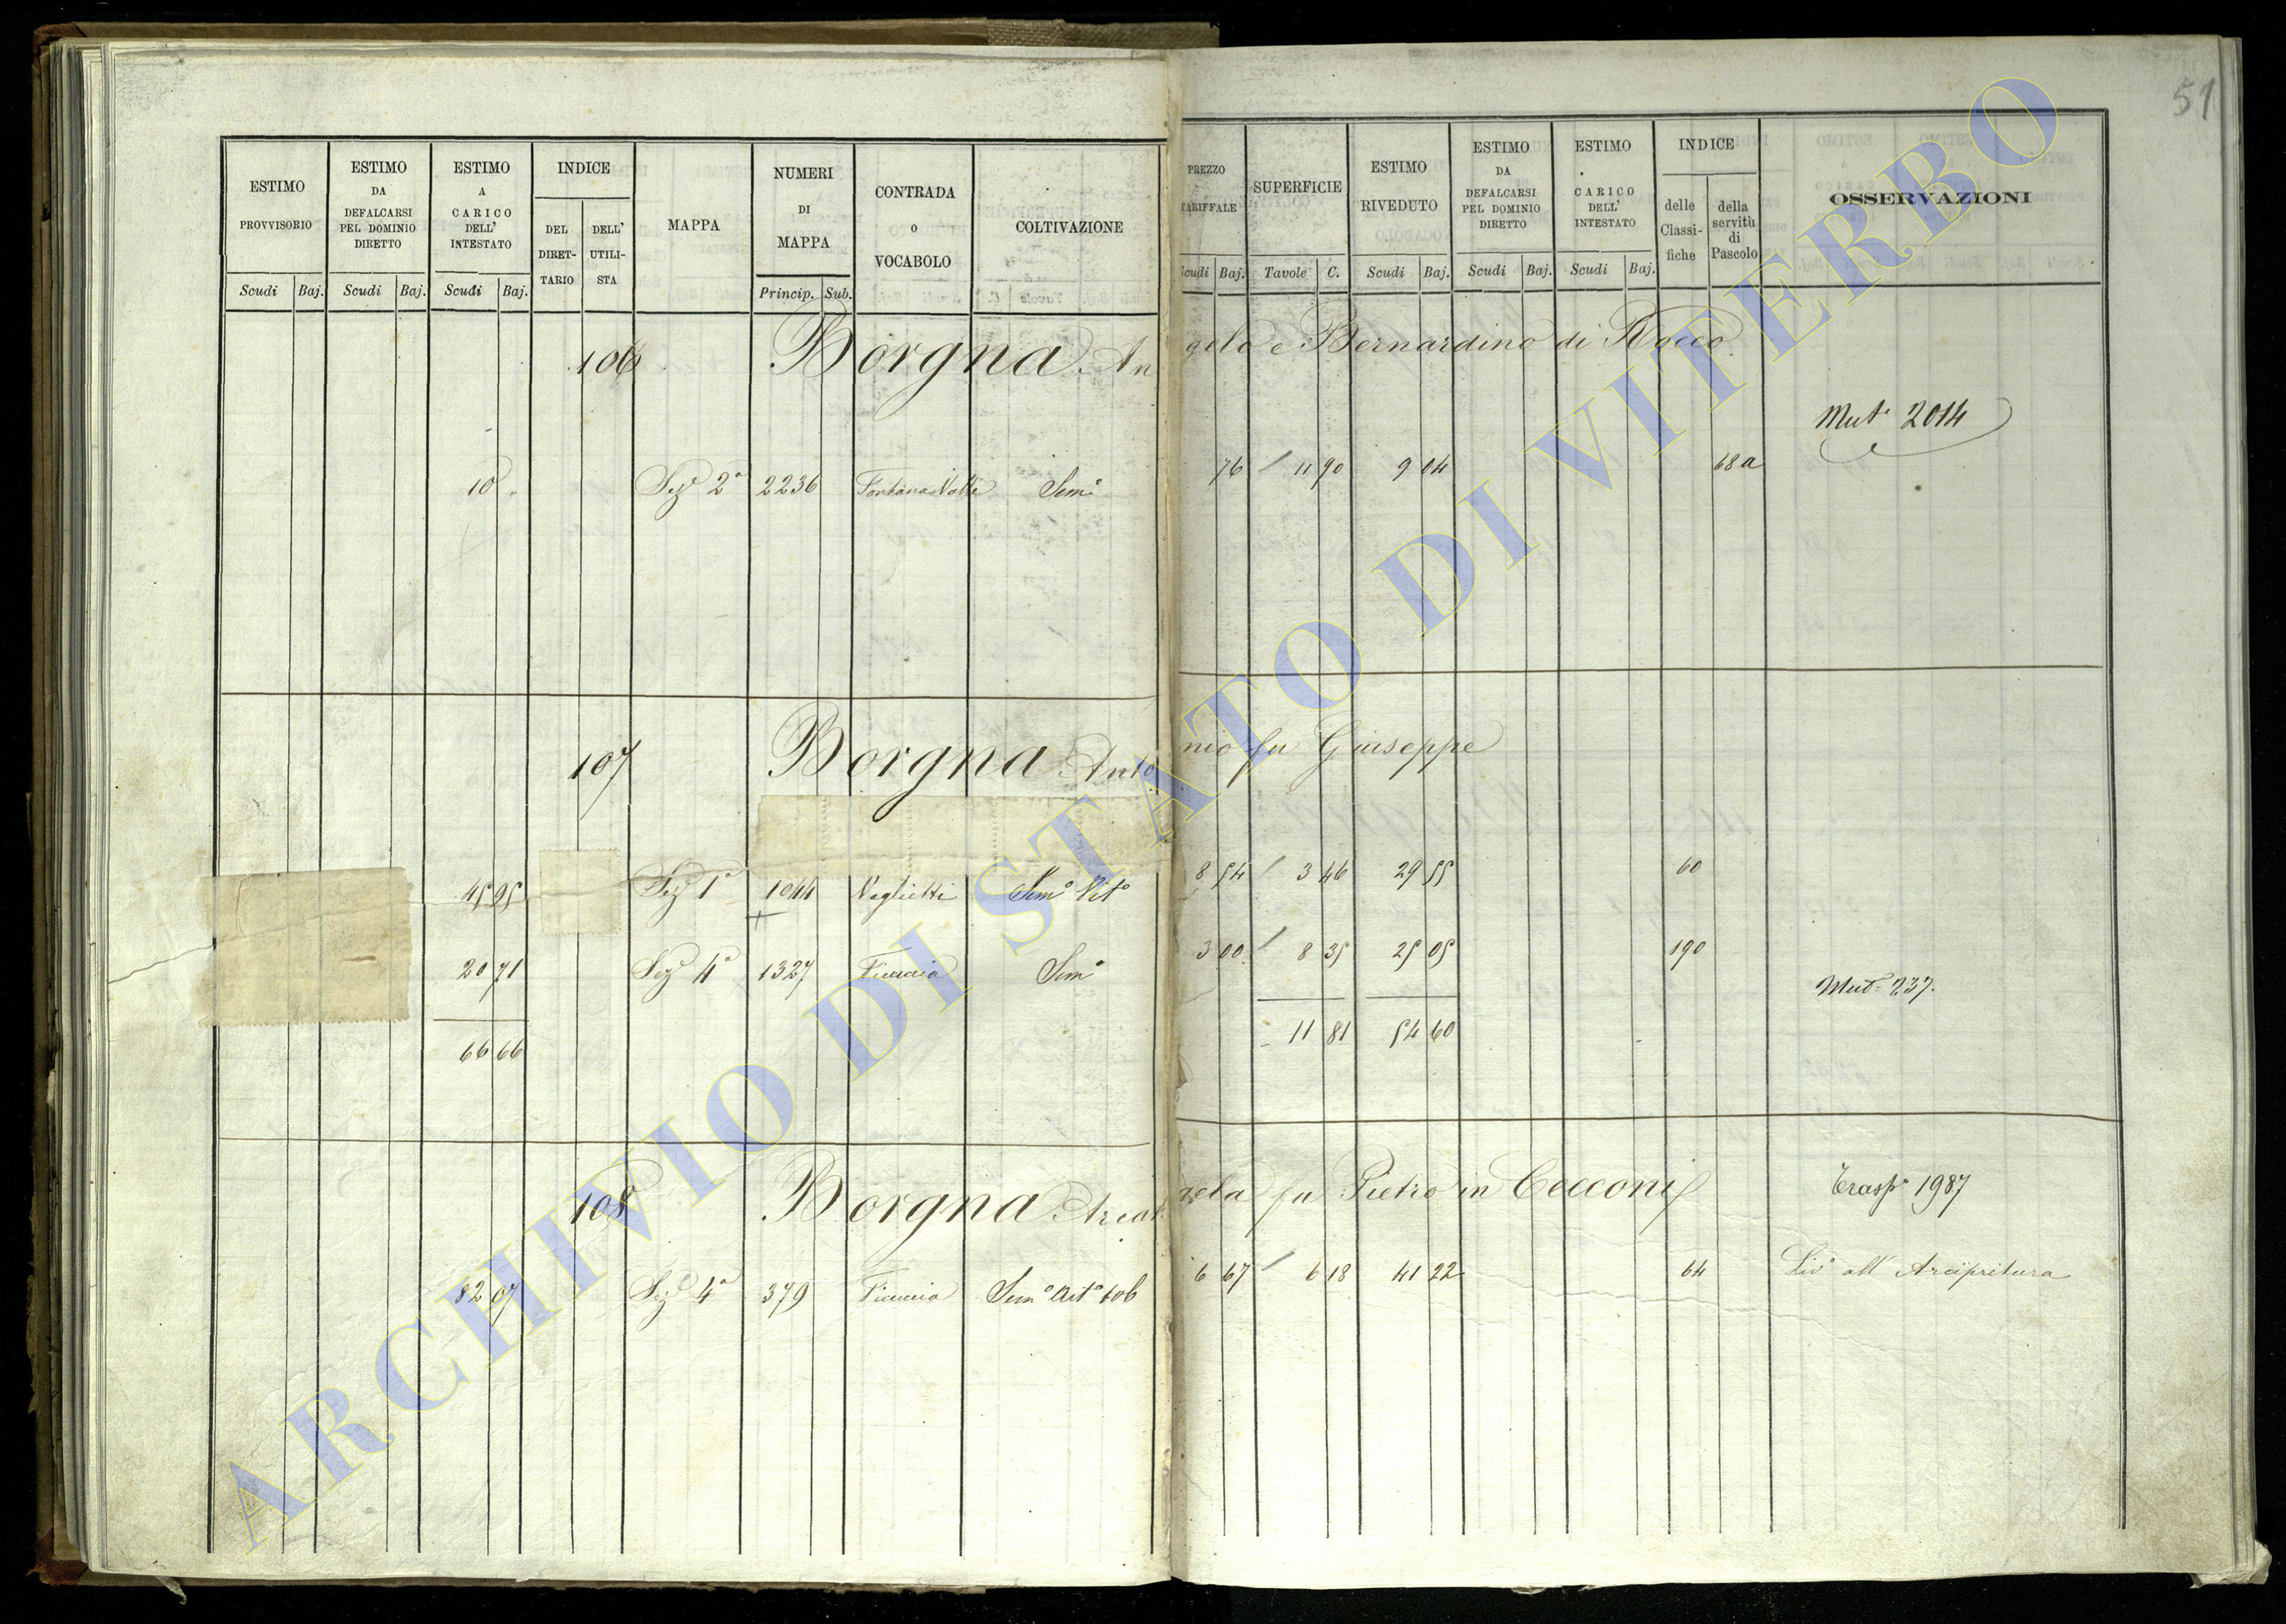 51
ESTIMO PROVVISORIO Scudi Baj.
ESTIMO DA DEFALCARSI PEL DOMINIO DIRETTO Scudi Baj.
ESTIMO A CARICO DELL' INTESTATO Scudi Baj.
INDICE DEL DIRETTARIO DELL' UTILISTA
MAPPA
NUMERI DI MAPPA Princip. Sub.
CONTRADA o VOCABOLO
COLTIVAZIONE
PREZZO TARIFFALE Scudi Baj.
SUPERFICIE Tavole C.
ESTIMO RIVEDUTO Scudi Baj.
ESTIMO DA DEFALCARSI PEL DOMINIO DIRETTO Scudi Baj.
ESTIMO A CARICO DELL' INTESTATO Scudi Baj.
INDICE delle Classifiche della servitù di Pascolo
OSSERVAZIONI
106 Borgna Angelo e Bernardino di Rocco
Mutª 2014
10 Sezº 2ª 2236 Semº 76 11 90 9 04 68a
107 Borgna Antonio fu Giuseppe
45 95 Sezº 1ª 1044 Veglietti Semº Vitº 8 54 3 46 29 55 60
20 71 Sezº 4ª 1327 Ficuccia Semº 3 00 8 35 25 05 190
Mutª 237.
66 66 11 81 54 60
108 Borgna Arcangela fu Pietro in Cecconi
Traspº 1987
82 07 Sezº 4ª 379 Ficuccia Semº Artº 6 67 6 18 41 22 64 Livº all' Arcipritura
ARCHIVIO DI STATO DI VITERBO